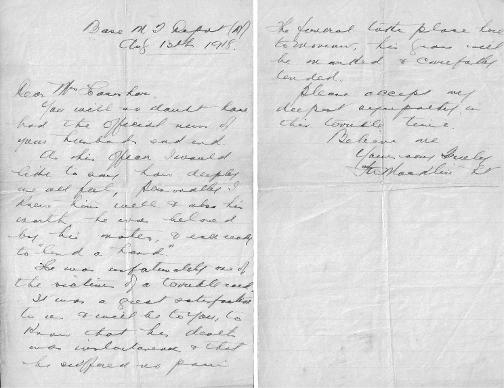 Base M T Depot (M)
Aug 13th 1918.
Dear Mrs
You will no doubt have
had the Official news of
your husbands sad end.
As his Officer I would
like to say how deeply
we all feel, personally I
knew him well & also his
worth he was beloved
by his mates, & ever ready
to "lend a hand"
He was unfortunately one of
the victims of a terrible
It was a great satisfaction
to us & will be to you, to
know that his death
was instantaneous & that
he suffered no pain
The funeral takes place here
tomorrow, his grave will
be marked & carefully
tended.
Please accept my
deepest sympathy in
this terrible time.
Believe me
Yours very
Lt